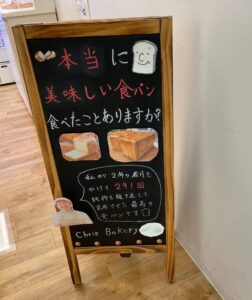 本当に
美味しい食パン
食べたことありますか?
私が2年の歳月を
かけて291回
試作を繰り返して
完成させた最高の
食パンです
Chris Bakery